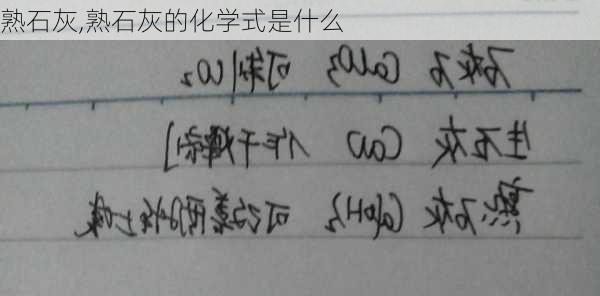 熟石灰,熟石灰的化学式是什么
石灰石 CaCO₃ 可制CO₂
生石灰 CaO 作干燥剂]
熟石灰 Ca(OH)₂ 可改良酸性土壤